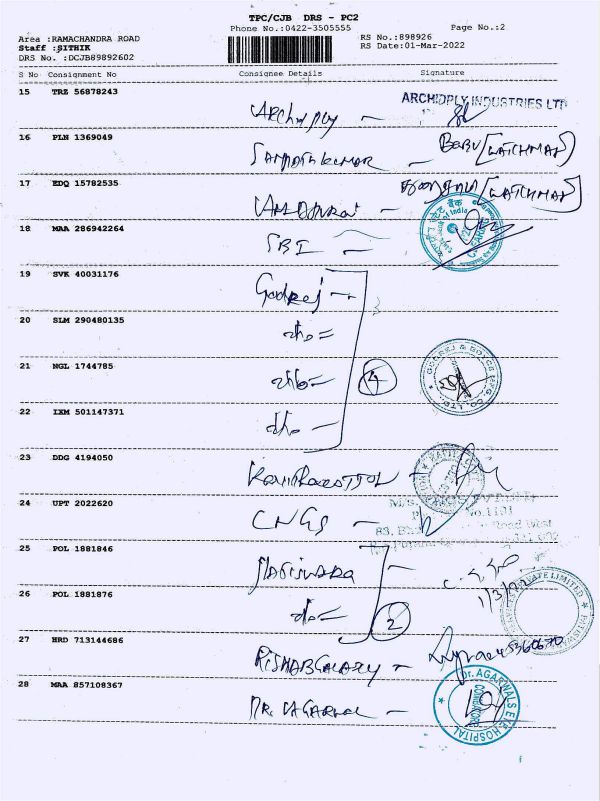 TPC/CJB DRS - PC2
Phone No.:0422-3505555 Page No.:2
Area :RAMACHANDRA ROAD RS No.:898926
Staff :SITHIK RS Date:01-Mar-2022
DRS No. :DCJB89892602
S No Consignment No Consignee Details Signature
15 TRZ 56878243
Archidply ARCHIDPLY INDUSTRIES LTD
16 PLN 1369049
Sampathkumar BABU [WATCHMAN]
17 EDQ 15782535
[WATCHMAN]
18 MAA 286942264
SBI
19 SVK 40031176
Godrej
20 SLM 290480135
do
21 NGL 1744785
do 4 GODREJ & BOYCE MFG. CO. LTD.
22 IXM 501147371
do
23 DDG 4194050
24 UPT 2022620
CNGS M/S.
No.1101
83, Road West
25 POL 1881846
1/3/22
26 POL 1881876
do 2 PRIVATE LIMITED
27 HRD 713144686
RISHABGALARY
28 MAA 857108367
DR. AGARWAL Dr. AGARWALS EYE HOSPITAL
COIMBATORE